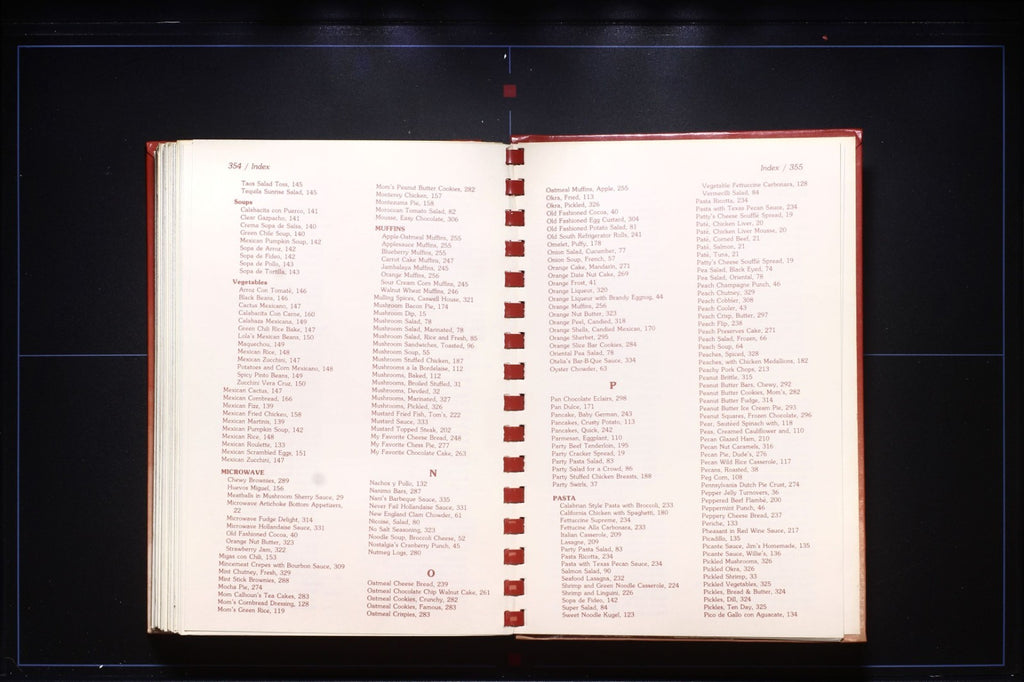 354 / Index
Taos Salad Toss, 145
Tequila Sunrise Salad, 145
Soups
Calabacita con Puerco, 141
Clear Gazpacho, 141
Crema Sopa de Salsa, 140
Green Chile Soup, 140
Mexican Pumpkin Soup, 142
Sopa de Arroz, 142
Sopa de Fideo, 142
Sopa de Pollo, 143
Sopa de Tortilla, 143
Vegetables
Arroz Con Tomate, 146
Black Beans, 146
Cactus Mexicano, 147
Calabacita Con Carne, 160
Calabaza Mexicana, 149
Green Chili Rice Bake, 147
Lola's Mexican Beans, 150
Maquechou, 149
Mexican Rice, 148
Mexican Zucchini, 147
Potatoes and Corn Mexicano, 148
Spicy Pinto Beans, 149
Zucchini Vera Cruz, 150
Mexican Cactus, 147
Mexican Cornbread, 166
Mexican Fizz, 139
Mexican Fried Chicken, 158
Mexican Martinis, 139
Mexican Pumpkin Soup, 142
Mexican Rice, 148
Mexican Roulette, 133
Mexican Scrambled Eggs, 151
Mexican Zucchini, 147
MICROWAVE
Chewy Brownies, 289
Huevos Miguel, 156
Meatballs in Mushroom Sherry Sauce, 29
Microwave Artichoke Bottom Appetizers,
22
Microwave Fudge Delight, 314
Microwave Hollandaise Sauce, 331
Old Fashioned Cocoa, 40
Orange Nut Butter, 323
Strawberry Jam, 322
Migas con Chili, 153
Mincemeat Crepes with Bourbon Sauce, 309
Mint Chutney, Fresh, 329
Mint Stick Brownies, 288
Mocha Pie, 274
Mom Calhoun's Tea Cakes, 283
Mom's Cornbread Dressing, 128
Mom's Green Rice, 119
Mom's Peanut Butter Cookies, 282
Monterey Chicken, 157
Montezuma Pie, 158
Moroccan Tomato Salad, 82
Mousse, Easy Chocolate, 306
MUFFINS
Apple-Oatmeal Muffins, 255
Applesauce Muffins, 255
Blueberry Muffins, 255
Carrot Cake Muffins, 247
Jambalaya Muffins, 245
Orange Muffins, 256
Sour Cream Corn Muffins, 245
Walnut Wheat Muffins, 246
Mulling Spices, Caswell House, 321
Mushroom Bacon Pie, 174
Mushroom Dip, 15
Mushroom Salad, 78
Mushroom Salad, Marinated, 78
Mushroom Salad, Rice and Fresh, 85
Mushroom Sandwiches, Toasted, 96
Mushroom Soup, 55
Mushroom Stuffed Chicken, 187
Mushrooms a la Bordelaise, 112
Mushrooms, Baked, 112
Mushrooms, Broiled Stuffed, 31
Mushrooms, Deviled, 32
Mushrooms, Marinated, 327
Mushrooms, Pickled, 326
Mustard Fried Fish, Tom's, 222
Mustard Sauce, 333
Mustard Topped Steak, 202
My Favorite Cheese Bread, 248
My Favorite Chess Pie, 277
My Favorite Chocolate Cake, 263
N
Nachos y Pollo, 132
Nanims Bars, 287
Nani's Barbeque Sauce, 335
Never Fail Hollandaise Sauce, 331
New England Clam Chowder, 61
Nicoise, Salad, 80
No Salt Seasoning, 323
Noodle Soup, Broccoli Cheese, 52
Nostalgia's Cranberry Punch, 45
Nutmeg Logs, 280
O
Oatmeal Cheese Bread, 239
Oatmeal Chocolate Chip Walnut Cake, 261
Oatmeal Cookies, Crunchy, 282
Oatmeal Cookies, Famous, 283
Oatmeal Crispies, 283
Index / 355
Oatmeal Muffins, Apple, 255
Okra, Fried, 113
Okra, Pickled, 326
Old Fashioned Cocoa, 40
Old Fashioned Egg Custard, 304
Old Fashioned Potato Salad, 81
Old South Refrigerator Rolls, 241
Omelet, Puffy, 178
Onion Salad, Cucumber, 77
Onion Soup, French, 57
Orange Cake, Mandarin, 271
Orange Date Nut Cake, 269
Orange Frost, 41
Orange Liqueur, 320
Orange Liqueur with Brandy Eggnog, 44
Orange Muffins, 256
Orange Nut Butter, 323
Orange Peel, Candied, 318
Orange Shells, Candied Mexican, 170
Orange Sherbet, 295
Orange Slice Bar Cookies, 284
Oriental Pea Salad, 78
Otelia's Bar-B-Que Sauce, 334
Oyster Chowder, 63
P
Pan Chocolate Eclairs, 298
Pan Dulce, 171
Pancake, Baby German, 243
Pancakes, Crusty Potato, 113
Pancakes, Quick, 242
Parmesan, Eggplant, 110
Party Beef Tenderloin, 195
Party Cracker Spread, 19
Party Pasta Salad, 83
Party Salad for a Crowd, 86
Party Stuffed Chicken Breasts, 188
Party Swirls, 37
PASTA
Calabrian Style Pasta with Broccoli, 233
California Chicken with Spaghetti, 180
Fettuccine Supreme, 234
Fettucine Alla Carbonara, 233
Italian Casserole, 209
Lasagne, 209
Party Pasta Salad, 83
Pasta Ricotta, 234
Pasta with Texas Pecan Sauce, 234
Salmon Salad, 90
Seafood Lasagna, 232
Shrimp and Green Noodle Casserole, 224
Shrimp and Linguini, 226
Sopa de Fideo, 142
Super Salad, 84
Sweet Noodle Kugel, 123
Vegetable Fettuccine Carbonara, 128
Vermicelli Salad, 84
Pasta Ricotta, 234
Pasta with Texas Pecan Sauce, 234
Patty's Cheese Soufflé Spread, 19
Paté, Chicken Liver, 20
Paté, Chicken Liver Mousse, 20
Paté, Corned Beef, 21
Paté, Salmon, 21
Paté, Tuna, 21
Patty's Cheese Soufflé Spread, 19
Pea Salad, Black Eyed, 74
Pea Salad, Oriental, 78
Peach Champagne Punch, 46
Peach Chutney, 329
Peach Cobbler, 308
Peach Cooler, 43
Peach Crisp, Butter, 297
Peach Flip, 238
Peach Preserves Cake, 271
Peach Salad, Frozen, 66
Peach Soup, 64
Peaches, Spiced, 328
Peaches, with Chicken Medallions, 182
Peachy Pork Chops, 213
Peanut Brittle, 315
Peanut Butter Bars, Chewy, 292
Peanut Butter Cookies, Mom's, 282
Peanut Butter Fudge, 314
Peanut Butter Ice Cream Pie, 293
Peanut Squares, Frozen Chocolate, 296
Pear, Sautéed Spinach with, 118
Peas, Creamed Cauliflower and, 110
Pecan Glazed Ham, 210
Pecan Nut Caramels, 316
Pecan Pie, Dude's, 276
Pecan Wild Rice Casserole, 117
Pecans, Roasted, 38
Peg Corn, 108
Pennsylvania Dutch Pie Crust, 274
Pepper Jelly Turnovers, 36
Peppered Beef Flambé, 200
Peppermint Punch, 46
Peppery Cheese Bread, 237
Periche, 133
Pheasant in Red Wine Sauce, 217
Picadillo, 135
Picante Sauce, Jim's Homemade, 135
Picante Sauce, Willie's, 136
Pickled Mushrooms, 326
Pickled Okra, 326
Pickled Shrimp, 33
Pickled Vegetables, 325
Pickles, Bread & Butter, 324
Pickles, Dill, 324
Pickles, Ten Day, 325
Pico de Gallo con Aguacate, 134